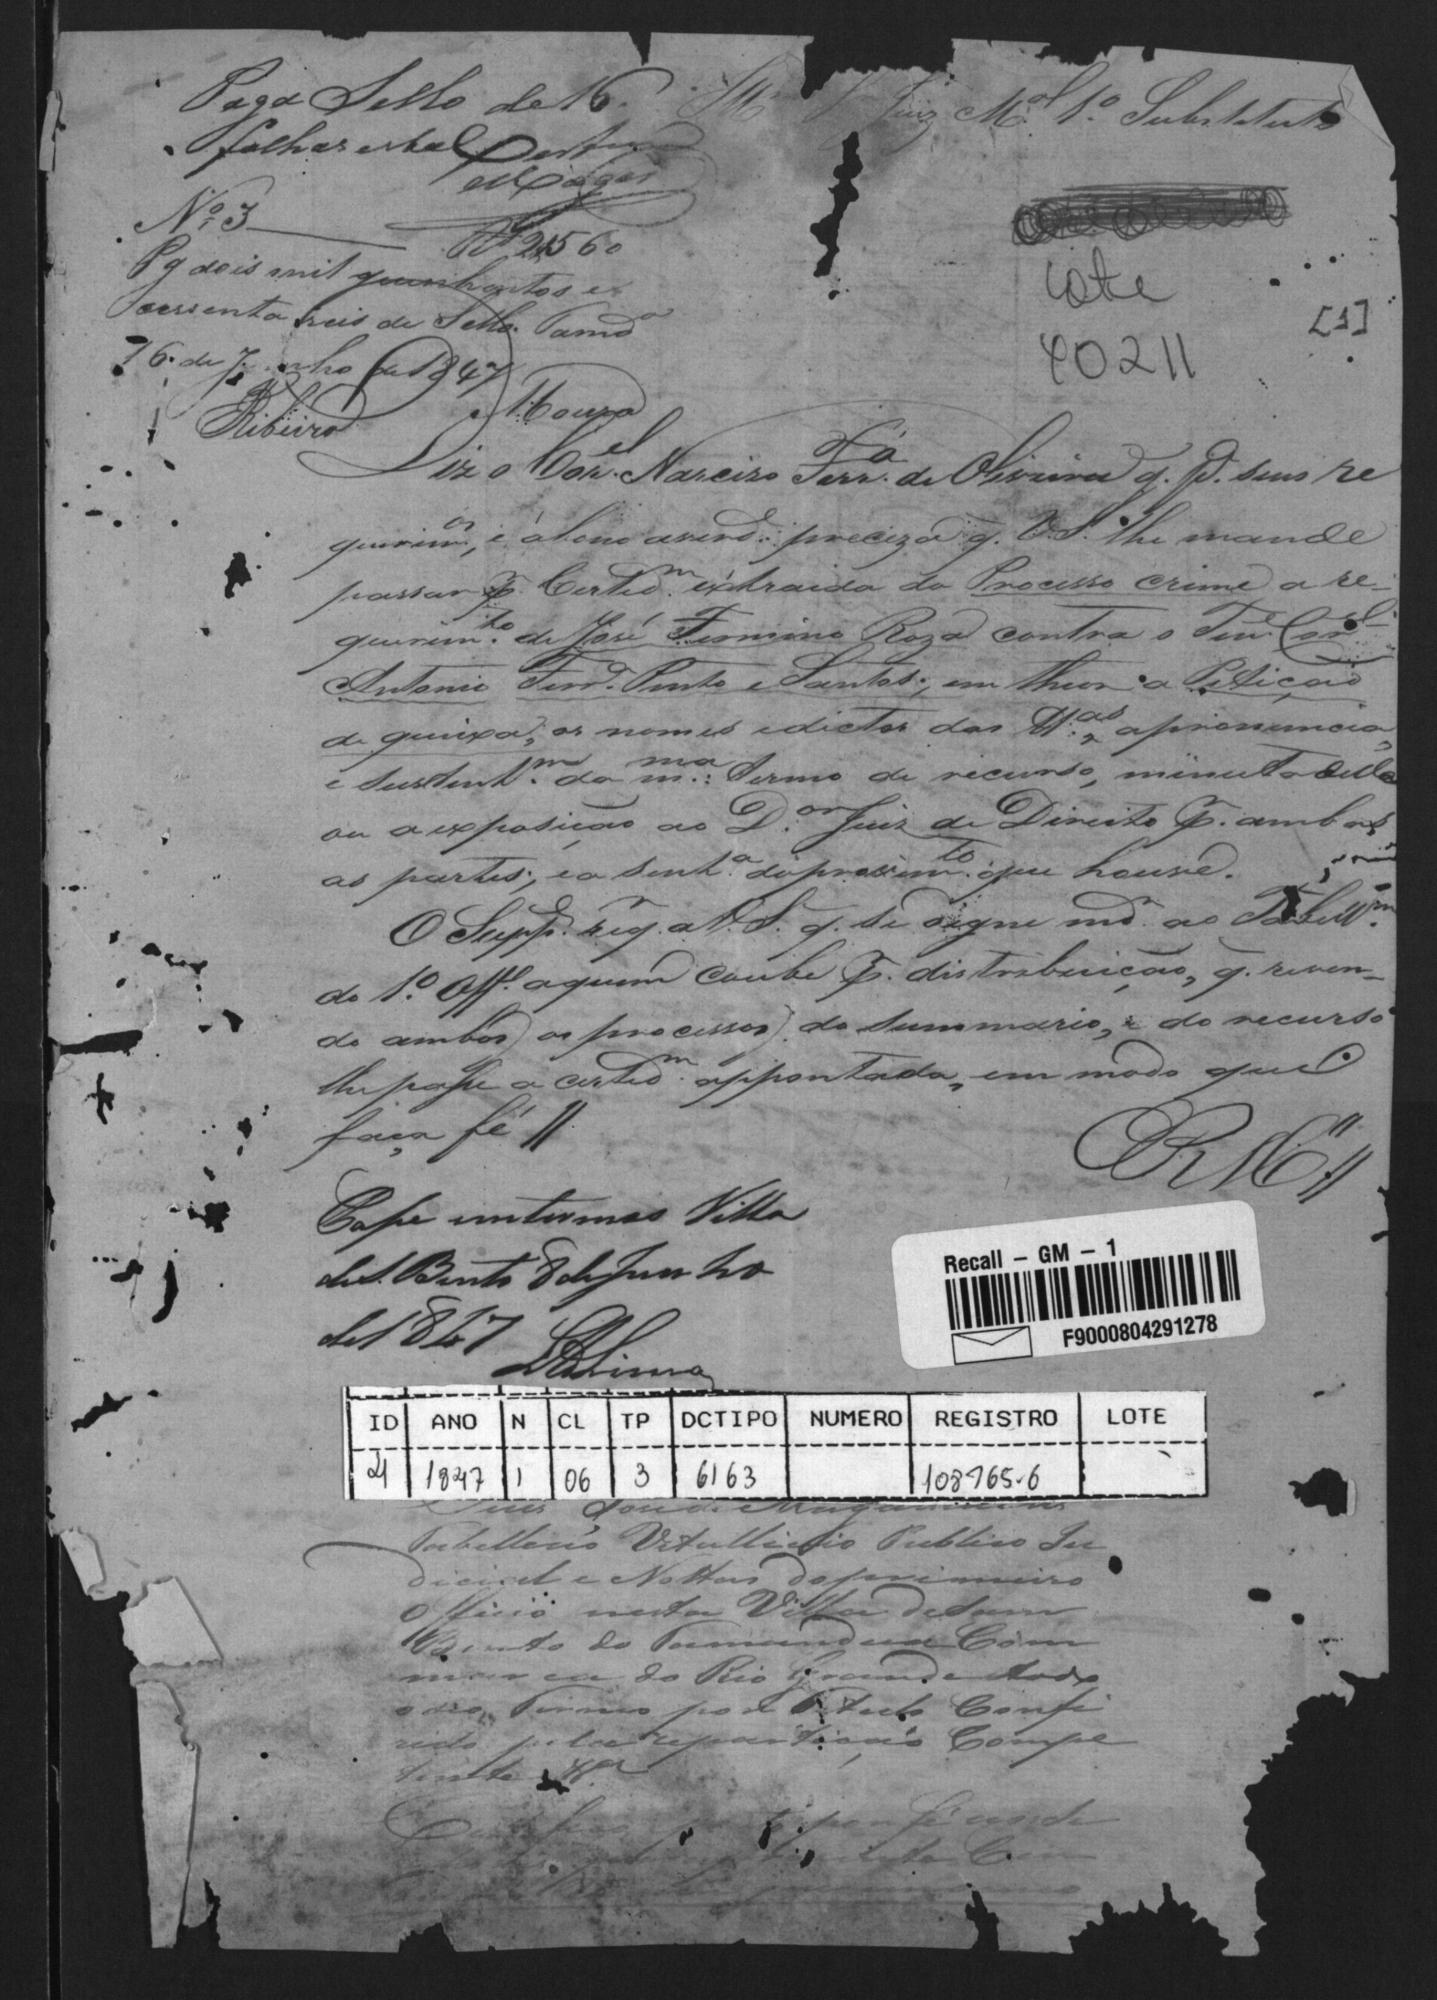 Paga Sello de 16
folhas esta Certam
Magas
Juiz M.al 1.º Substituto
N.º 3
R 2$560
Pg dois mil quinhentos e
sessenta reis de Sello. Tamd.a
16 de Junho de 1847
Ribeiro Moura
lote
40211
[1]
Diz o Cor.el Narcizo Ferr.a de Oliveira q. p. seus re
querim., e abono preciza q. V. S. lhe mande
passar p. Certid.m extraida do Processo crime a re-
querim.to de José Firmino Roza contra o Ten.e Cor.el
Antonio Ferr.a Pinto e Santos; em theor a Petição
de queixa, os nomes e dictos das tt.as, a pronuncia,
e sustent.m da m.ma: termo de recurso, minuta delle
ou a exposição ao D.or Juiz de Direito p. ambas
as partes; e a sent.a do que houve.
O Supp.e req. a V. S. q. se digne md.r ao Tabell.m
do 1.º Off.o a quem coube p. distribuição, q. reven-
do ambos os processos, do summario, e do recurso
lhe passe a certid.m appontada, em modo que
faça fé //
E R M.ce //
Passe em termos Villa
de S. Bento 8 de Junho
de 1847
Lima
Recall - GM - 1
F9000804291278
ID ANO N CL TP DCTIPO NUMERO REGISTRO LOTE
21 1847 1 06 3 6163 108765-6
Tabellião Vitallicio Publico Ju
dicial e Nottas do primeiro
Officio nesta Villa de Sam
Bento do Tamanduá Com
marca do Rio Grande
Termo por Titulo Confi
rido pela repartição Compe
tente &.a